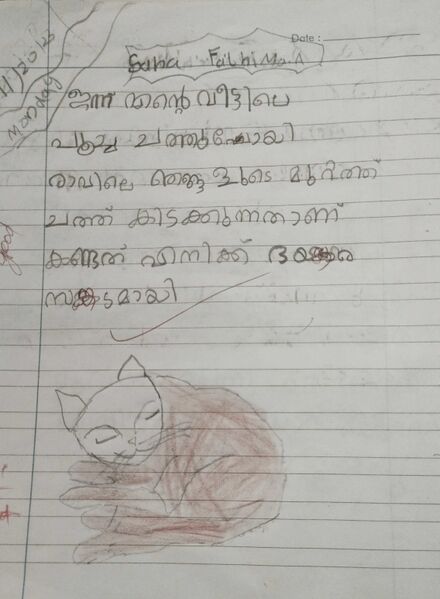 11/2025
Monday
Date :
Sana Fathima. A
ഇന്ന് എന്റെ വീട്ടിലെ
പൂച്ച ചത്തുപോയി
രാവിലെ ഞങ്ങളുടെ മുറ്റത്ത്
ചത്ത് കിടക്കുന്നതാണ്
കണ്ടത് എനിക്ക് ഭയങ്കര
സങ്കടമായി
good